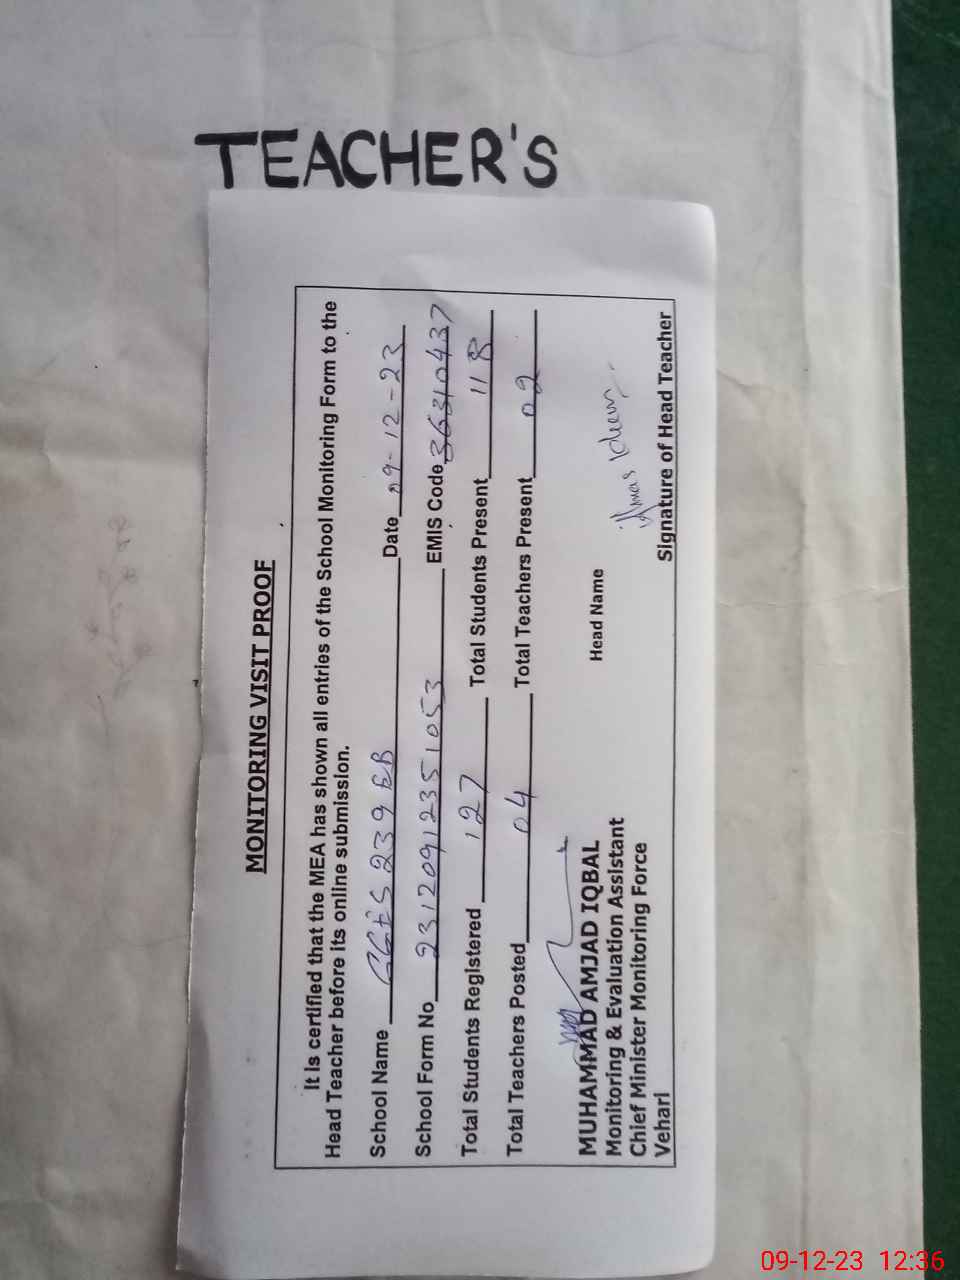 TEACHER'S
MONITORING VISIT PROOF
It is certified that the MEA has shown all entries of the School Monitoring Form to the
Head Teacher before its online submission.
School Name GGES 239 EB Date 09-12-23
School Form No 23120912351053 EMIS Code 36310437
Total Students Registered 127 Total Students Present 118
Total Teachers Posted 04 Total Teachers Present 02
MUHAMMAD AMJAD IQBAL
Monitoring & Evaluation Assistant
Chief Minister Monitoring Force
Vehari
Head Name
Signature of Head Teacher
09-12-23 12:36